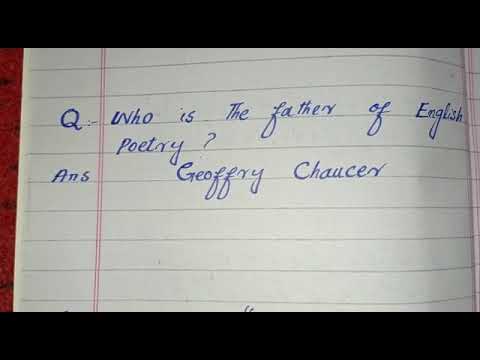 Q:- Who is The father of English
Poetry ?
Ans Geoffry Chaucer